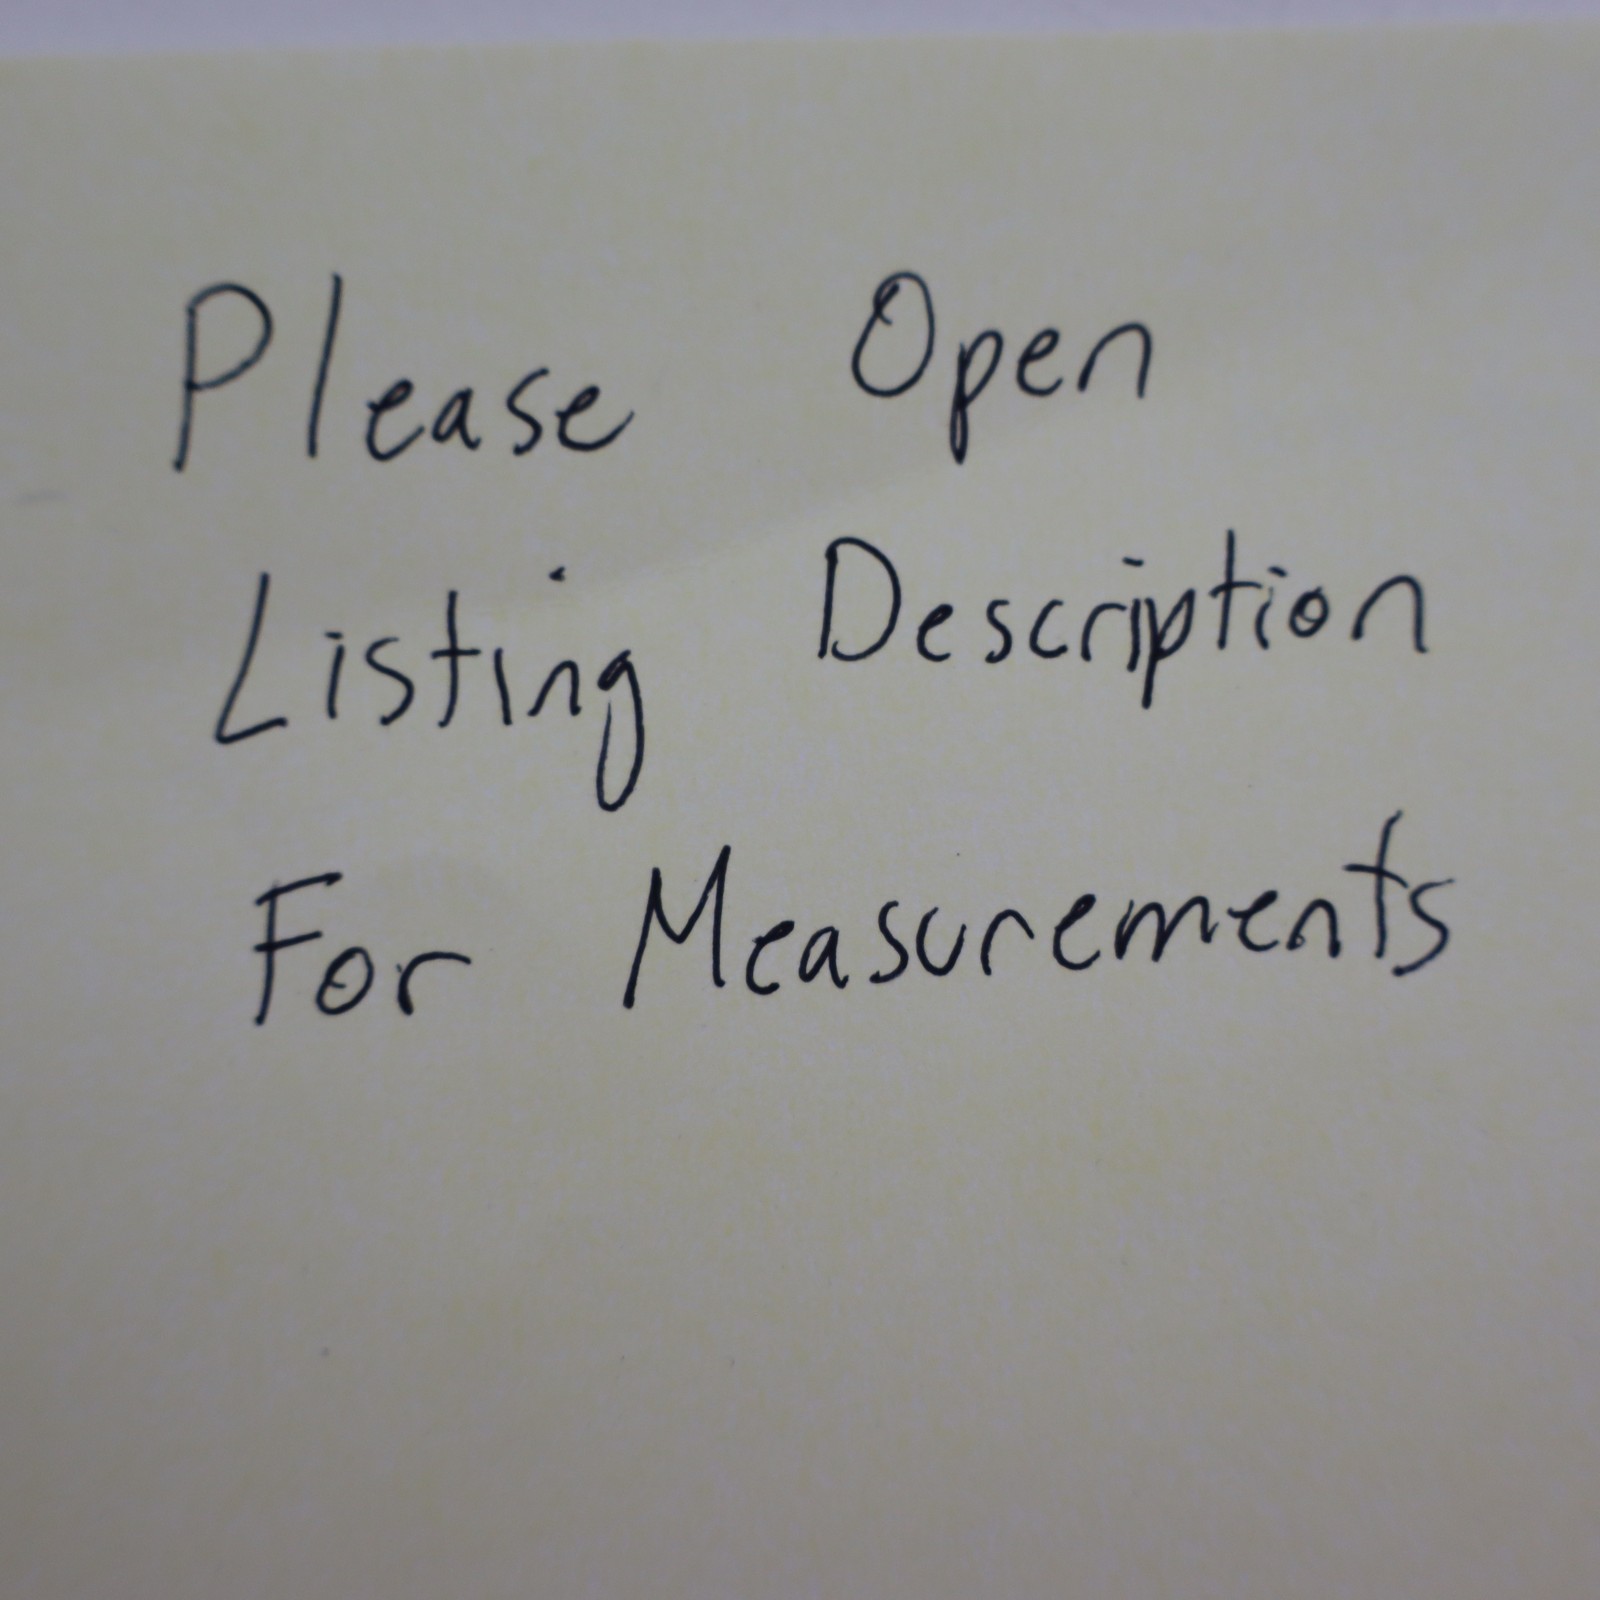 Please Open
Listing Description
For Measurements